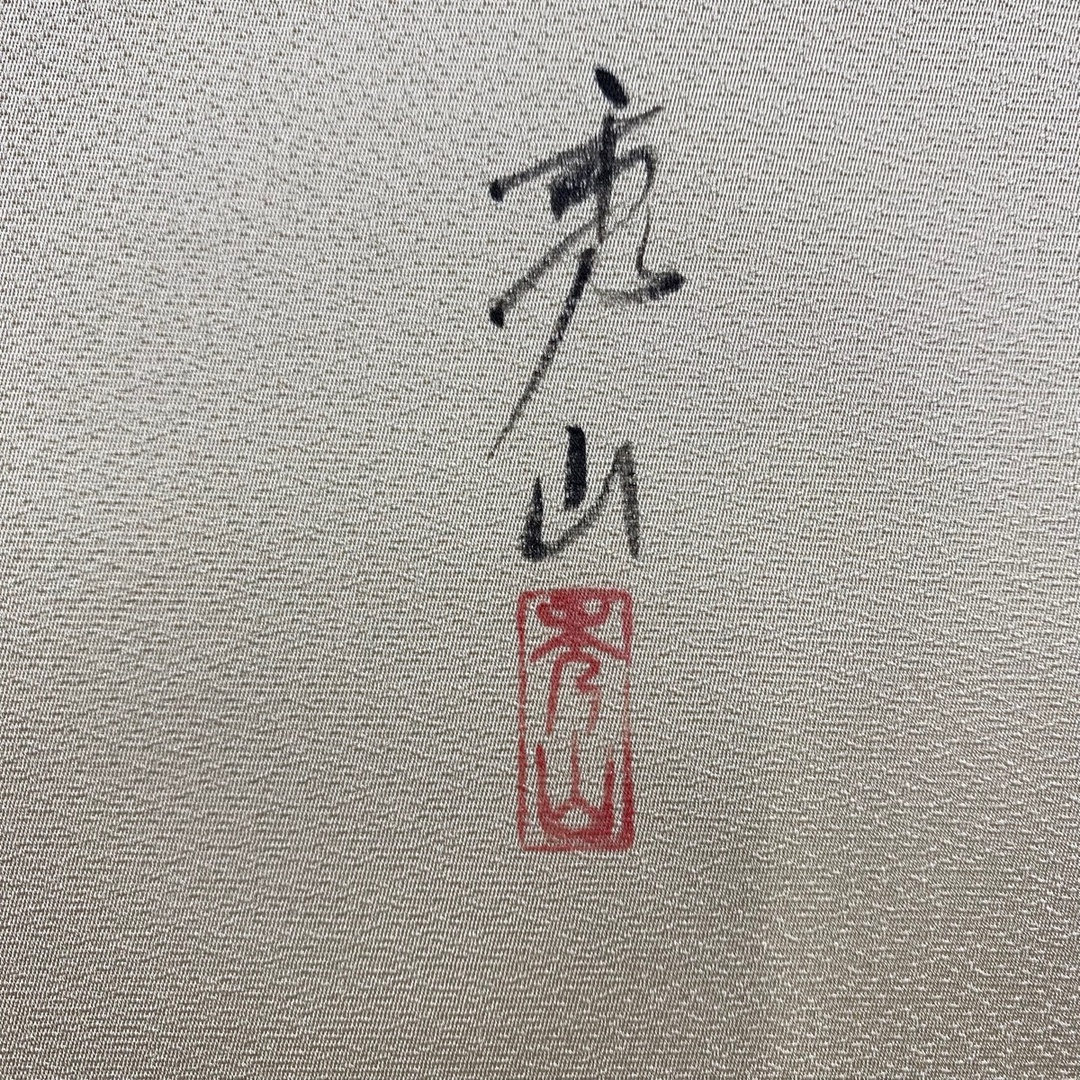 秀山
秀山